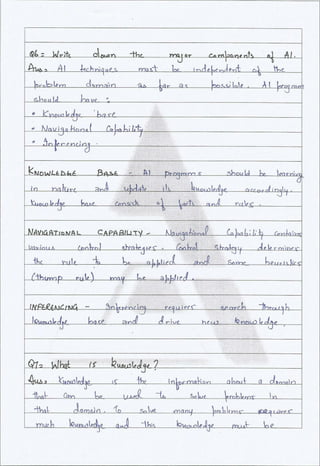 Q6 = Write down the major components of AI.
Ans = AI techniques must be independent of the
problem domain as far as possible. AI program
should have :
• Knowledge base
• Navigational Capability
• Inferencing
KNOWLEDGE BASE - AI programs should be learning
in nature and update its knowledge accordingly.
Knowledge base consists of facts and rules.
NAVIGATIONAL CAPABILITY - Navigational Capability contains
various control strategies. Control Strategy determines
the rule to be applied and some heuristics
(thump rule) may be applied.
INFERENCING - Inferencing requires search through
knowledge base and drive new knowledge.
Q7 = What is knowledge?
Ans = Knowledge is the information about a domain
that can be used to solve problems in
that domain. To solve many problems requires
much knowledge and this knowledge must be